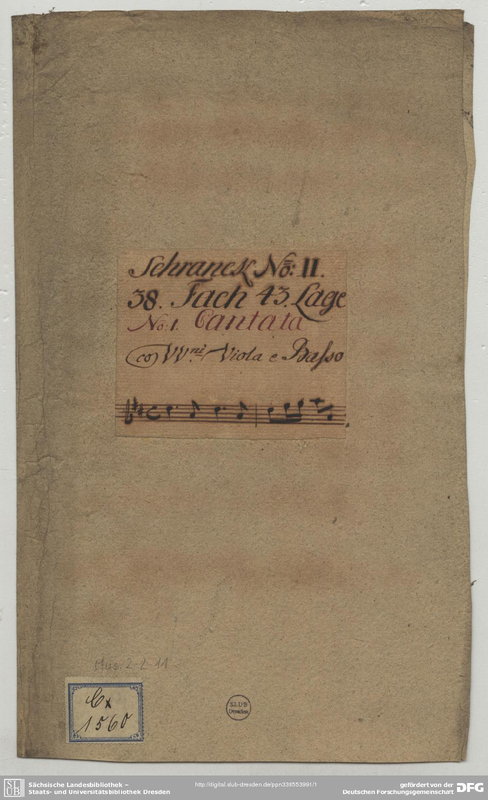 Schranck No: II.
38. Fach 43. Lage
No: 1. Cantata
co VV.ni Viola e Basso
Cx
1560
SLUB
Dresden
Sächsische Landesbibliothek –
Staats- und Universitätsbibliothek Dresden
http://digital.slub-dresden.de/ppn338553991/1
gefördert von der
Deutschen Forschungsgemeinschaft
DFG